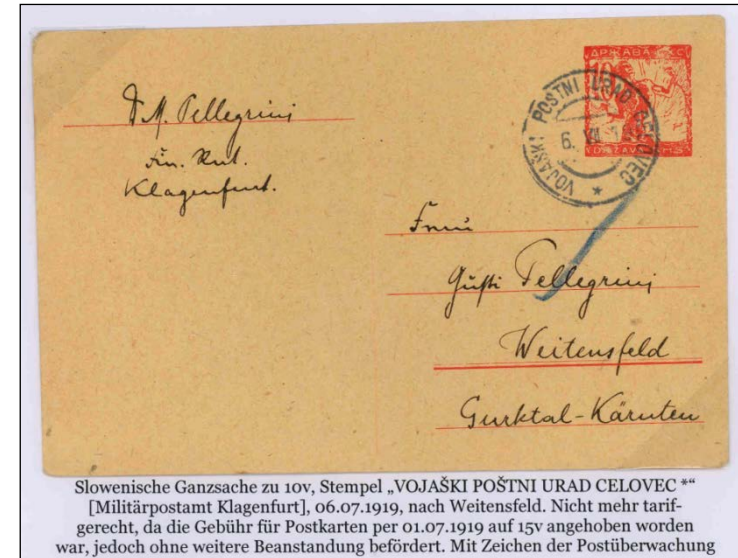 ДРЖАВА СХС
VOJAŠKI POŠTNI URAD CELOVEC *
6. VII. 19
DRŽAVA SHS
Pellegrini
Klagenfurt.
Frau
Gusti Pellegrini
Weitensfeld
Gurktal-Kärnten
Slowenische Ganzsache zu 10v, Stempel „VOJAŠKI POŠTNI URAD CELOVEC *“
[Militärpostamt Klagenfurt], 06.07.1919, nach Weitensfeld. Nicht mehr tarif-
gerecht, da die Gebühr für Postkarten per 01.07.1919 auf 15v angehoben worden
war, jedoch ohne weitere Beanstandung befördert. Mit Zeichen der Postüberwachung